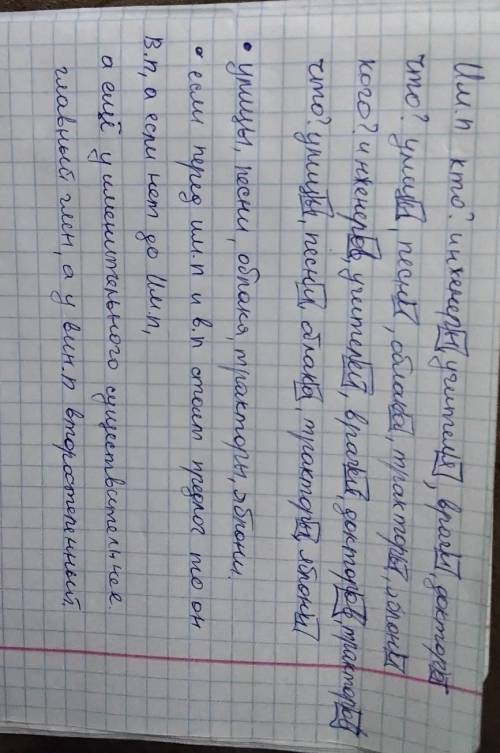 Им.п кто? инженеры, учителя, врачи, доктора
что? улицы, песни, облака, тракторы, яблони
кого? инженеров, учителей, врачей, докторов, тракторов
что? улицы, песни, облака, тракторы, яблони
• улицы, песни, облака, тракторы, яблони.
• если перед им.п и в.п стоит предлог то он
В.п, а если нет до Им.п,
а ещё у именительного существительнее.
главный член, а у вин.п второстепенный.